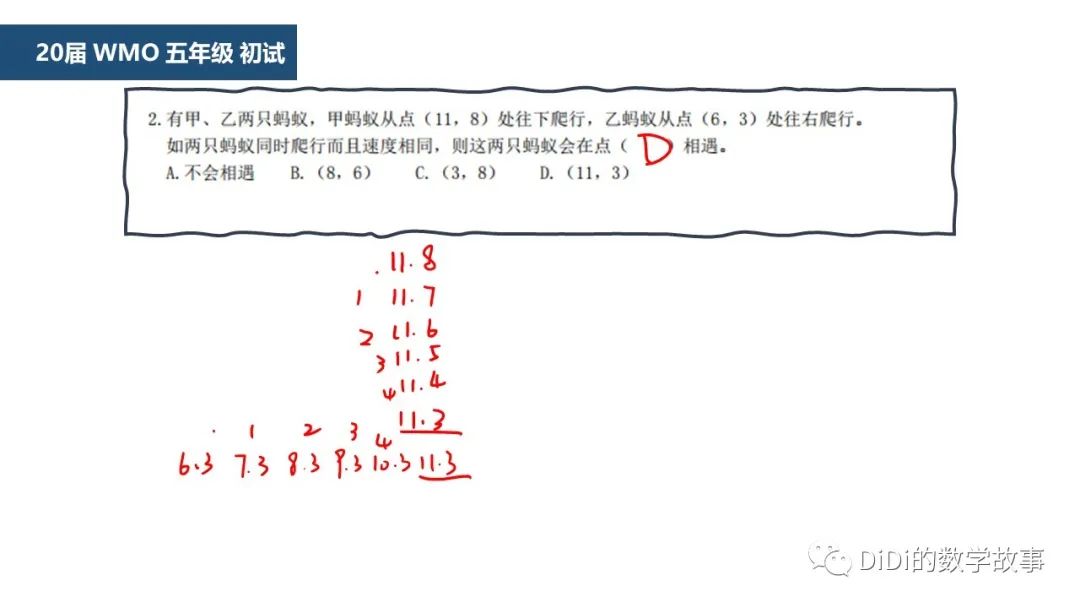 20届 WMO 五年级 初试
2.有甲、乙两只蚂蚁，甲蚂蚁从点（11，8）处往下爬行，乙蚂蚁从点（6，3）处往右爬行。
如两只蚂蚁同时爬行而且速度相同，则这两只蚂蚁会在点（ D ）相遇。
A.不会相遇 B.（8，6） C.（3，8） D.（11，3）
. 11.8
1 11.7
2 11.6
3 11.5
4 11.4
11.3
. 1 2 3 4
6.3 7.3 8.3 9.3 10.3 11.3
DiDi的数学故事